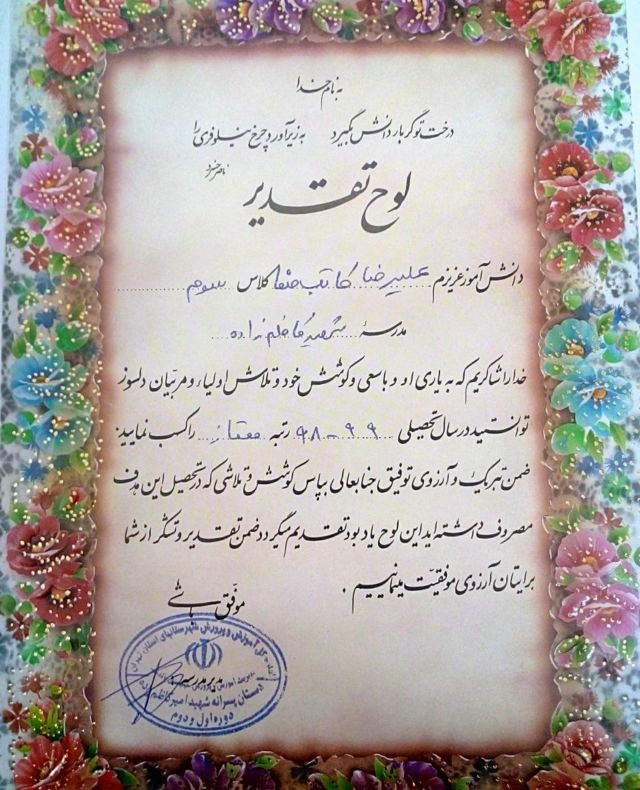 به نام خدا
درخت تو گر بار دانش بگیرد به زیر آورد چرخ نیلوفری را
ناصر خسرو
لوح تقدیر
دانش آموز عزیزم علیرضا کلاس سوم
مدرسهٔ شهید کاظم زاده
خدا را شاکریم که به یاری او و با سعی و کوشش خود و تلاش اولیاء و مربّیان دلسوز
توانستید در سال تحصیلی ۹۹-۹۸ رتبه ممتاز را کسب نمایید.
ضمن تبریک و آرزوی توفیق جنابعالی بپاس کوشش و تلاشی که در تحصیل این هدف
مصروف داشته اید این لوح یادبود تقدیم میگردد ضمن تقدیر و تشکر از شما
برایتان آرزوی موفقیّت مینماییم .
موفّق باشی
اداره کل آموزش و پرورش شهرستانهای استان تهران
مدیر مدرسه
دبستان پسرانه شهید امیر کاظم
دوره اول و دوم